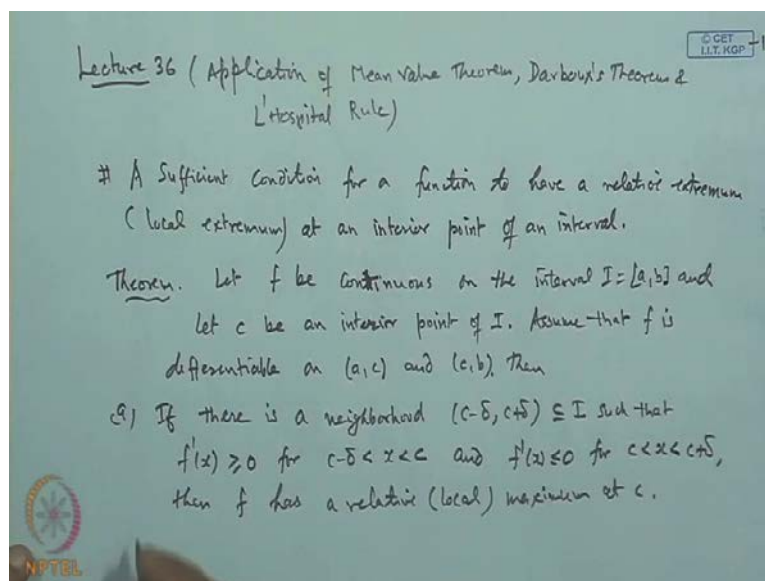 © CET
I.I.T. KGP
Lecture 36 (Application of Mean Value Theorem, Darboux's Theorem &
L'Hospital Rule)
# A Sufficient Condition for a function to have a relative extremum
(local extremum) at an interior point of an interval.
Theorem. Let f be continuous on the interval I=[a,b] and
let c be an interior point of I. Assume that f is
differentiable on (a,c) and (c,b). Then
(a) If there is a neighborhood (c-δ, c+δ) ⊆ I such that
f'(x) ≥ 0 for c-δ < x < c and f'(x) ≤ 0 for c < x < c+δ,
then f has a relative (local) maximum at c.
NPTEL